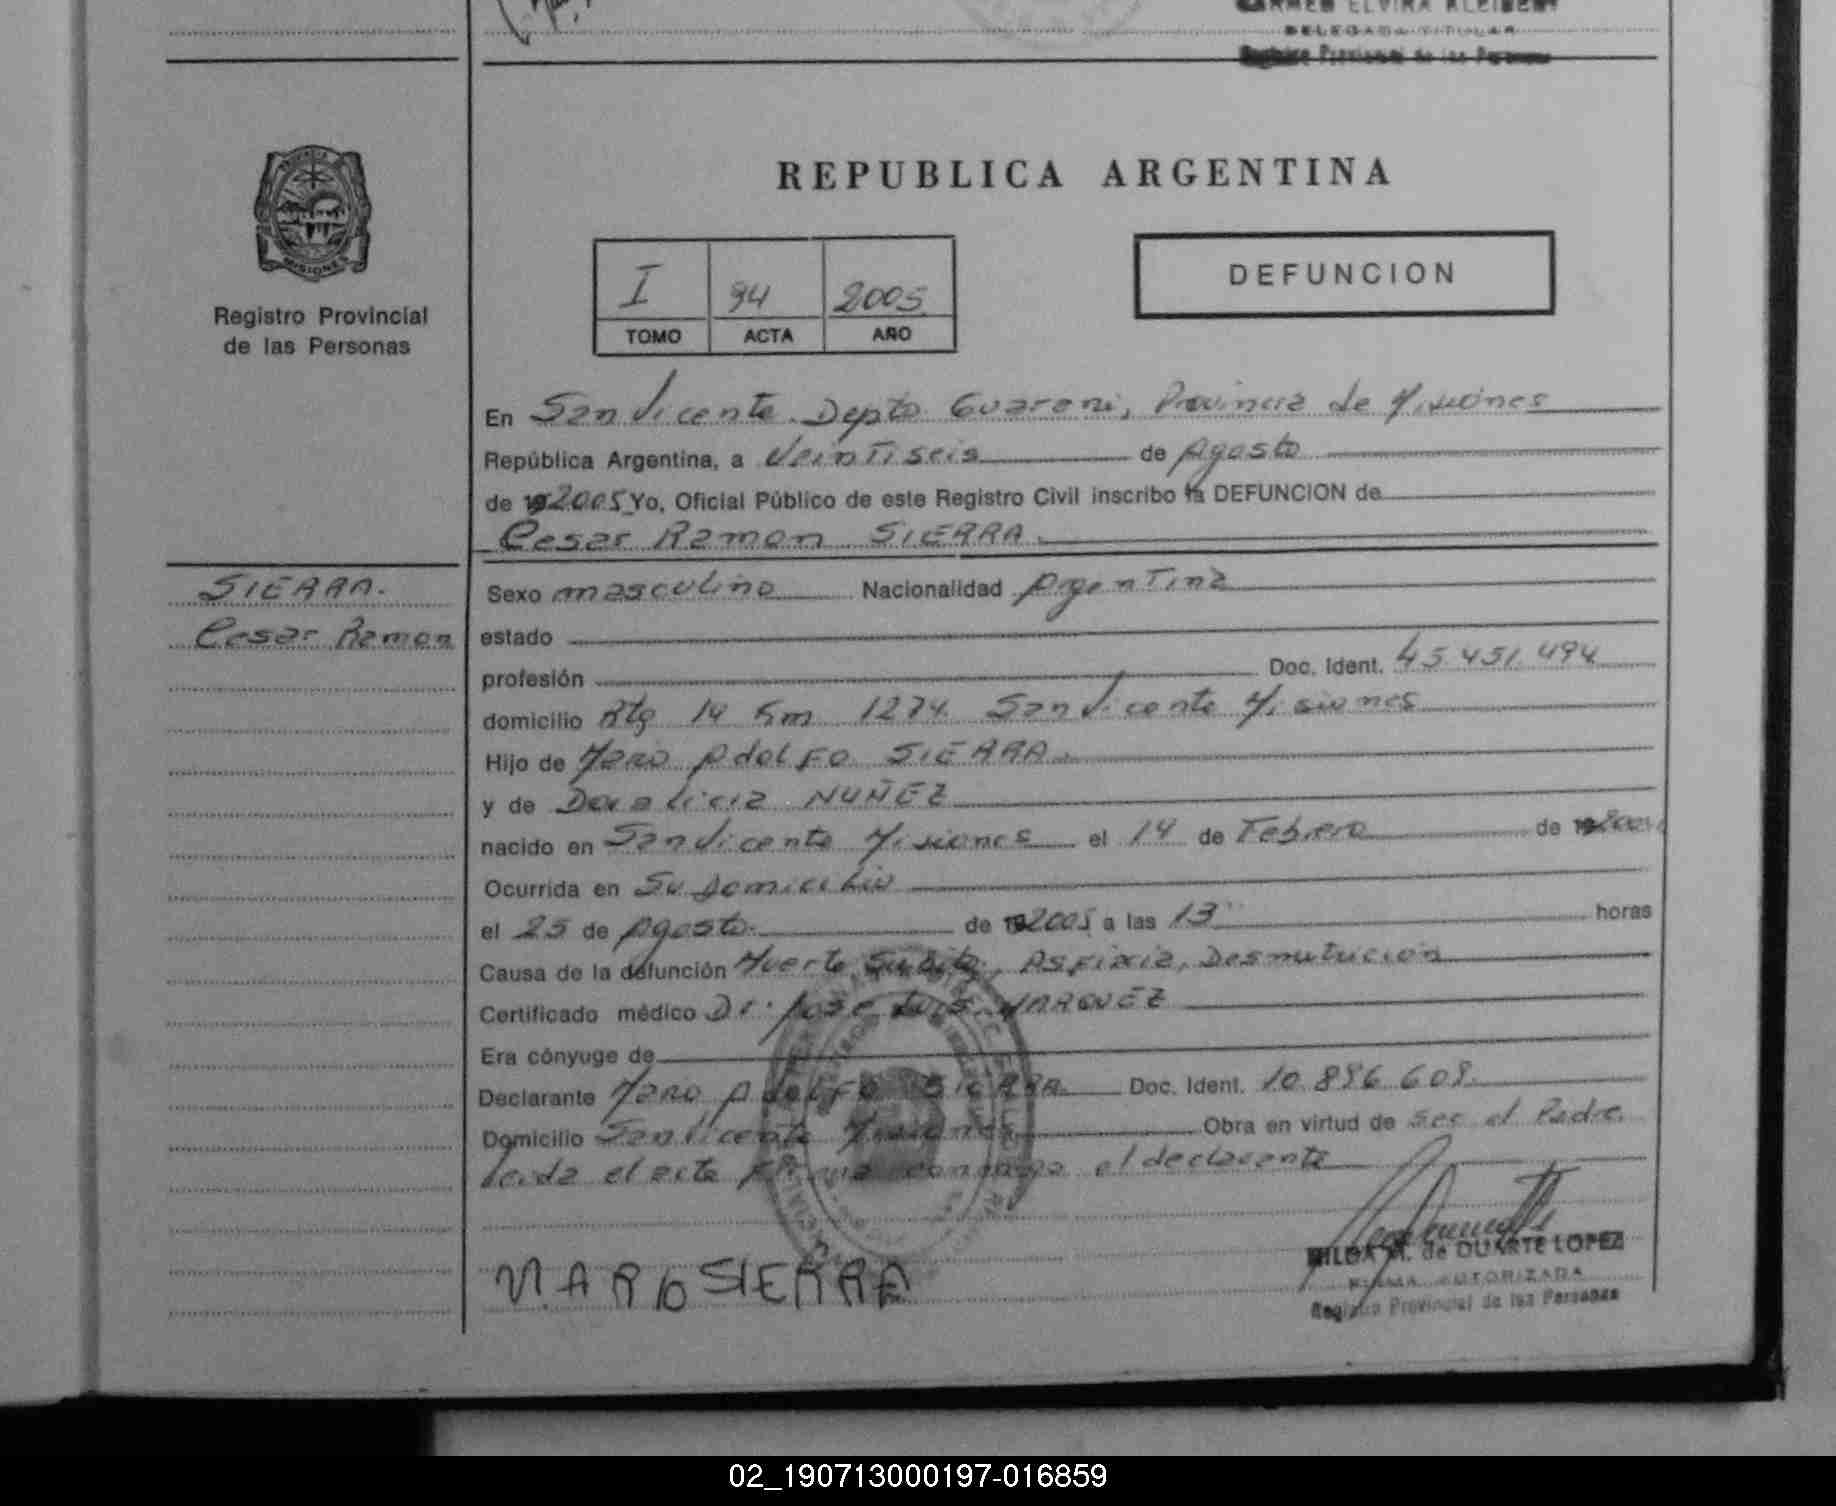 CARMEN ELVIRA KLEIBERT
DELEGADA TITULAR
Registro Provincial de las Personas
MISIONES
Registro Provincial
de las Personas
REPUBLICA ARGENTINA
I 94 2005
TOMO ACTA AÑO
DEFUNCION
En San Vicente Depto Guarani, Provincia de Misiones
República Argentina, a Veintiseis de Agosto
de 19 2005 Yo, Oficial Público de este Registro Civil inscribo la DEFUNCION de
Cesar Ramon SIERRA
SIERRA.
Cesar Ramon
Sexo masculino Nacionalidad Argentina
estado
profesión Doc. Ident. 45.451.494
domicilio Rta 14 Km 1274 San Vicente Misiones
Hijo de Mario Adolfo SIERRA
y de Doralicia NUÑEZ
nacido en San Vicente Misiones el 14 de Febrero de 19
Ocurrida en Su domicilio
el 25 de Agosto de 19 2005 a las 13 horas
Causa de la defunción Muerte Subita, Asfixia, Desnutricion
Certificado médico Dr. Jose Luis MARQUEZ
Era cónyuge de
Declarante Mario Adolfo SIERRA Doc. Ident. 10.896.608
Domicilio San Vicente Misiones Obra en virtud de ser el Padre.
Leida el acta firma conmigo el declarante
MARIO SIERRA
HILDA M. de DUARTE LOPEZ
FIRMA AUTORIZADA
Registro Provincial de las Personas
02_190713000197-016859